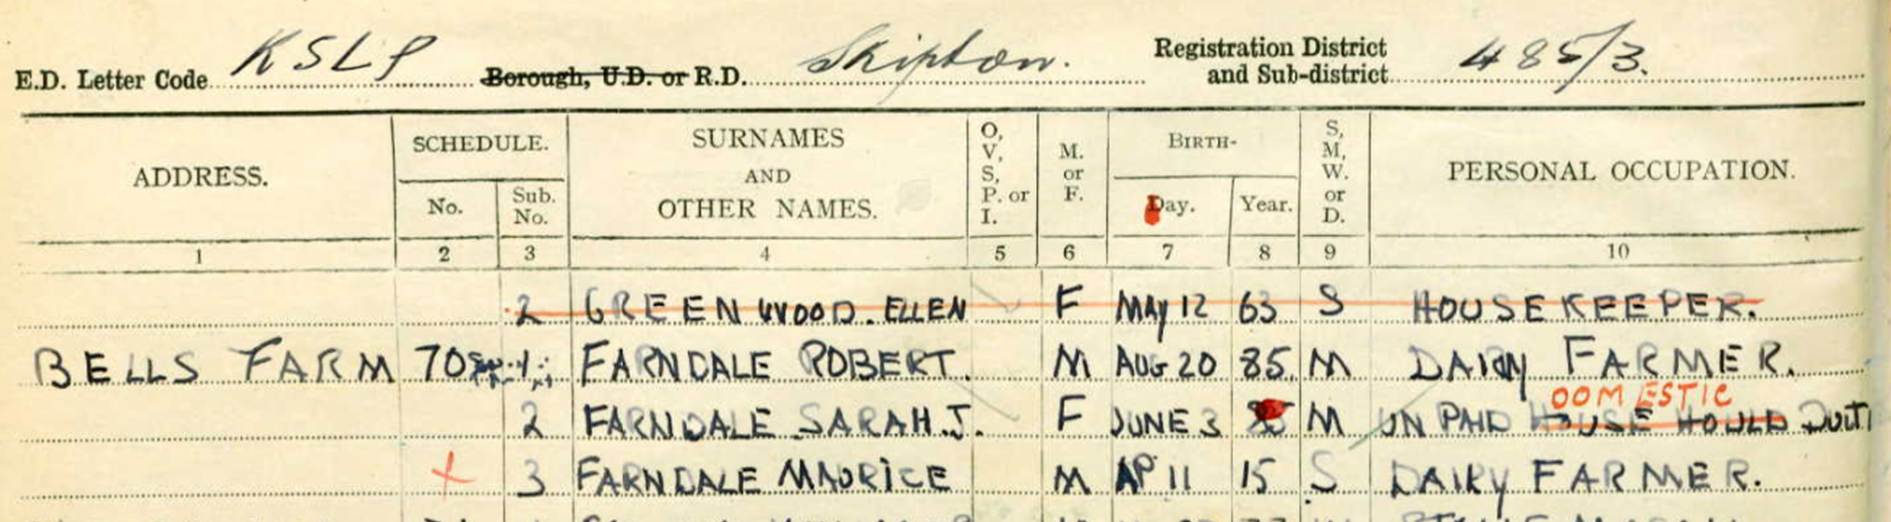 E.D. Letter Code KSLP Borough, U.D. or R.D. Skipton. Registration District and Sub-district 485/3.
ADDRESS. SCHEDULE. No. Sub. No. SURNAMES AND OTHER NAMES. O, V, S, P. or I. M. or F. BIRTH- Day. Year. S, M, W. or D. PERSONAL OCCUPATION.
1 2 3 4 5 6 7 8 9 10
2 GREENWOOD. ELLEN F MAY 12 63 S HOUSEKEEPER.
BELLS FARM 70 1 FARNDALE ROBERT. M AUG 20 85 M DAIRY FARMER.
DOMESTIC
2 FARNDALE SARAH J. F JUNE 3 M UNPAID HOUSE HOULD DUTI
3 FARNDALE MAURICE M AP 11 15 S DAIRY FARMER.